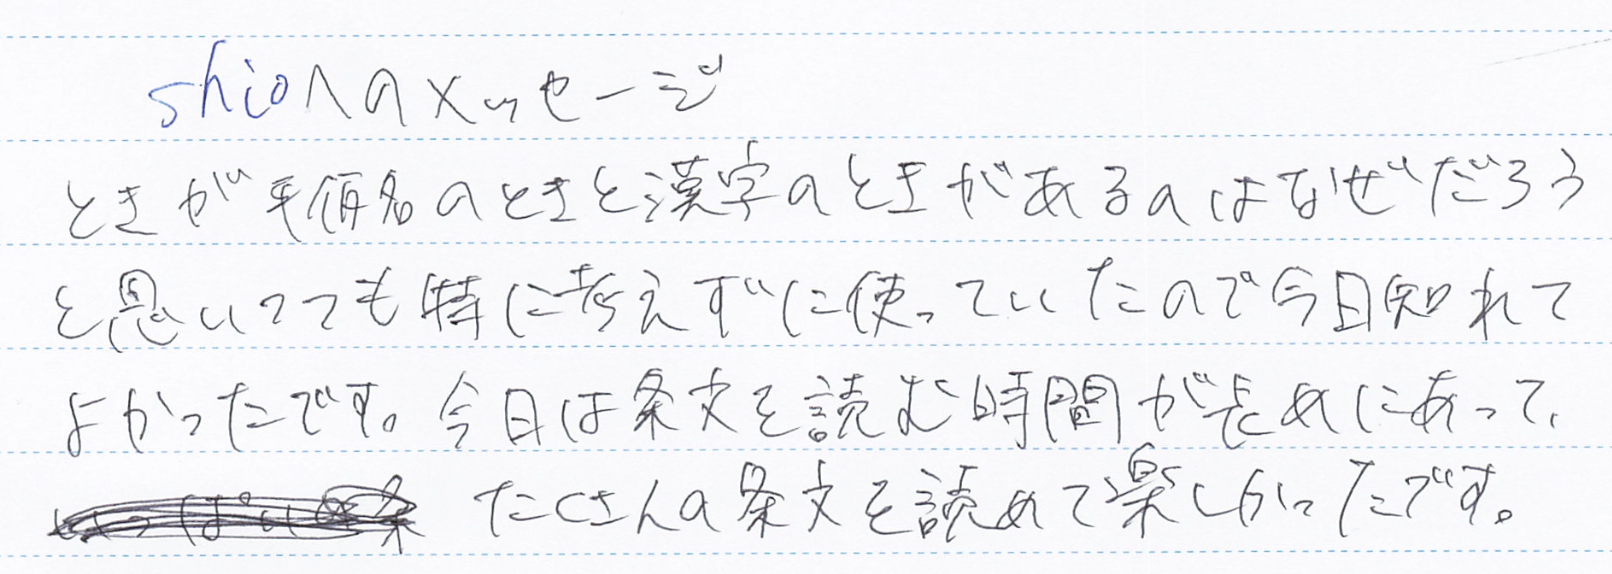 shioへのメッセージ
ときが平仮名のときと漢字のときがあるのはなぜだろう
と思いつつも特に考えずに使っていたので今日知れて
よかったです。今日は条文を読む時間が長めにあって、
たくさんの条文を読めて楽しかったです。